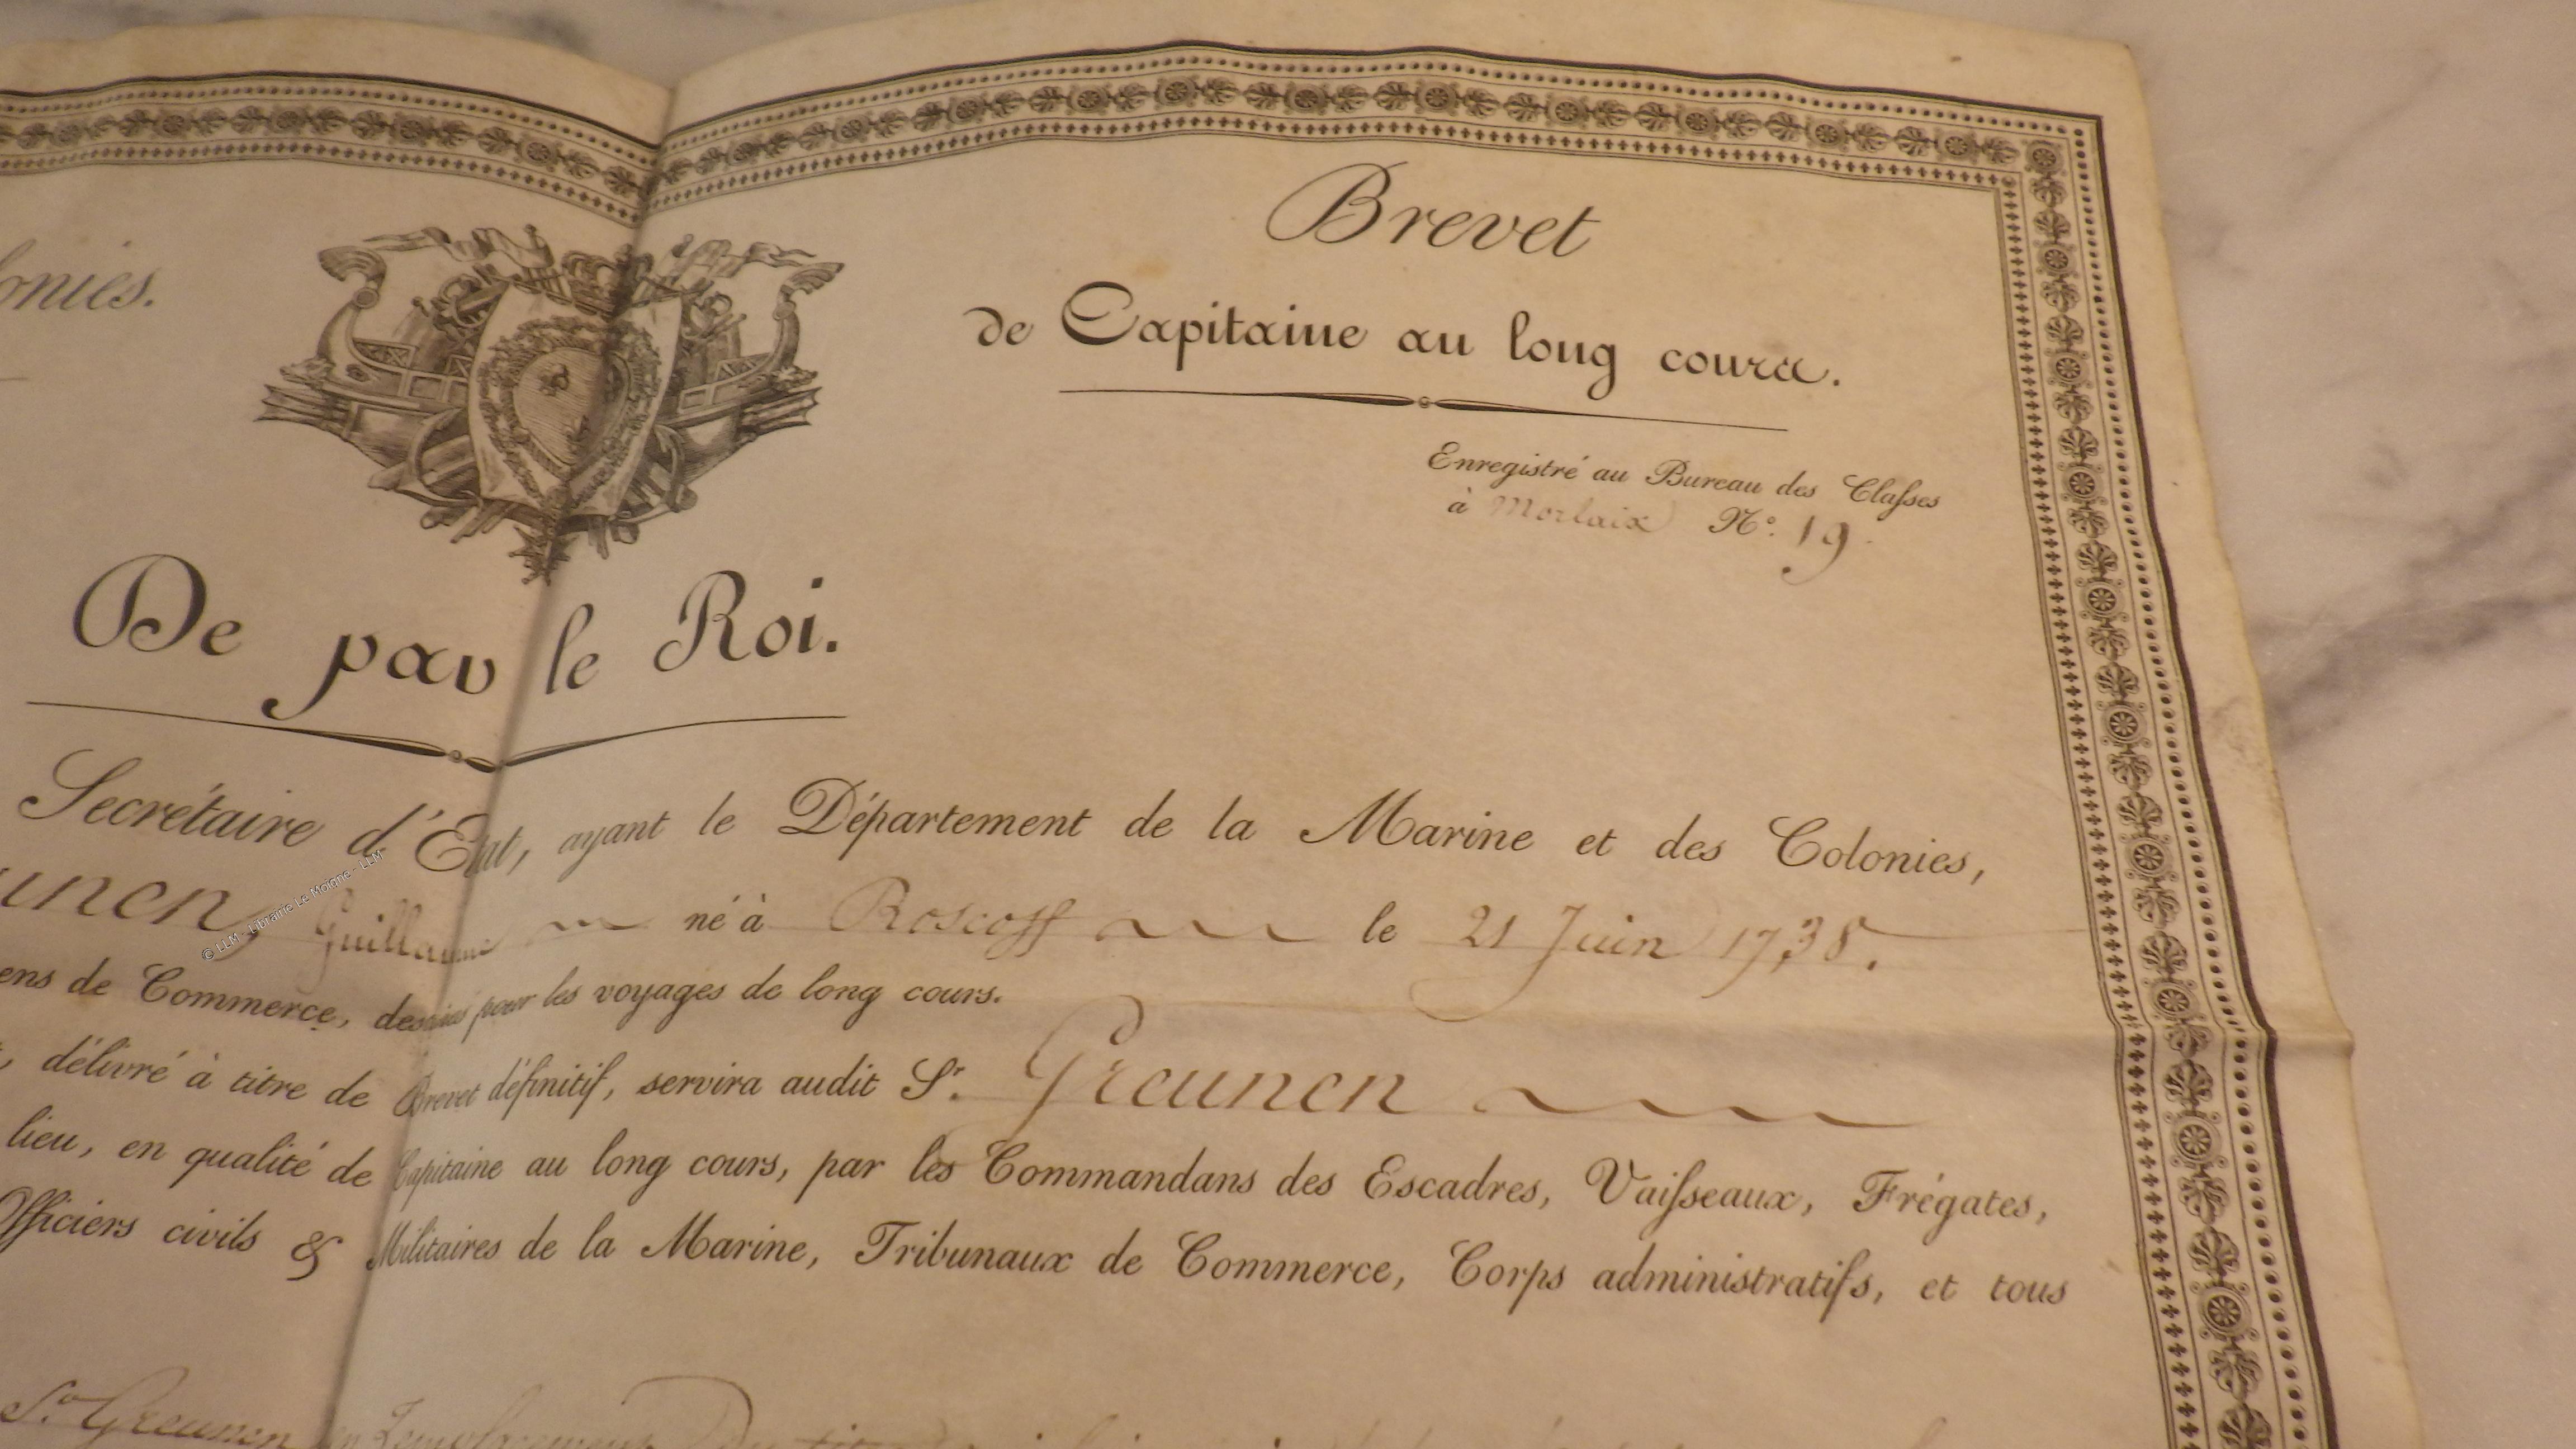 Brevet
de Capitaine au long cours.
onies.
Enregistré au Bureau des Classes
à Morlaix N.º 19.
De par le Roi.
Secrétaire d'Etat, ayant le Département de la Marine et des Colonies,
unen, Guillaume né à Roscoff le 21 Juin 1738.
ens de Commerce, destinés pour les voyages de long cours.
, délivré à titre de Brevet définitif, servira audit S.r Greunen
lieu, en qualité de Capitaine au long cours, par les Commandans des Escadres, Vaisseaux, Frégates,
Officiers civils & Militaires de la Marine, Tribunaux de Commerce, Corps administratifs, et tous
S.r Greunen en
© LLM - Librairie Le Moigne - LLM